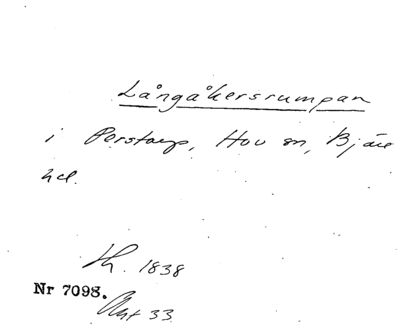 Långåkersrumpan
i Perstorp, Hov sn, Bjäre
hd.
1838
Nr 7098.
Akt 33